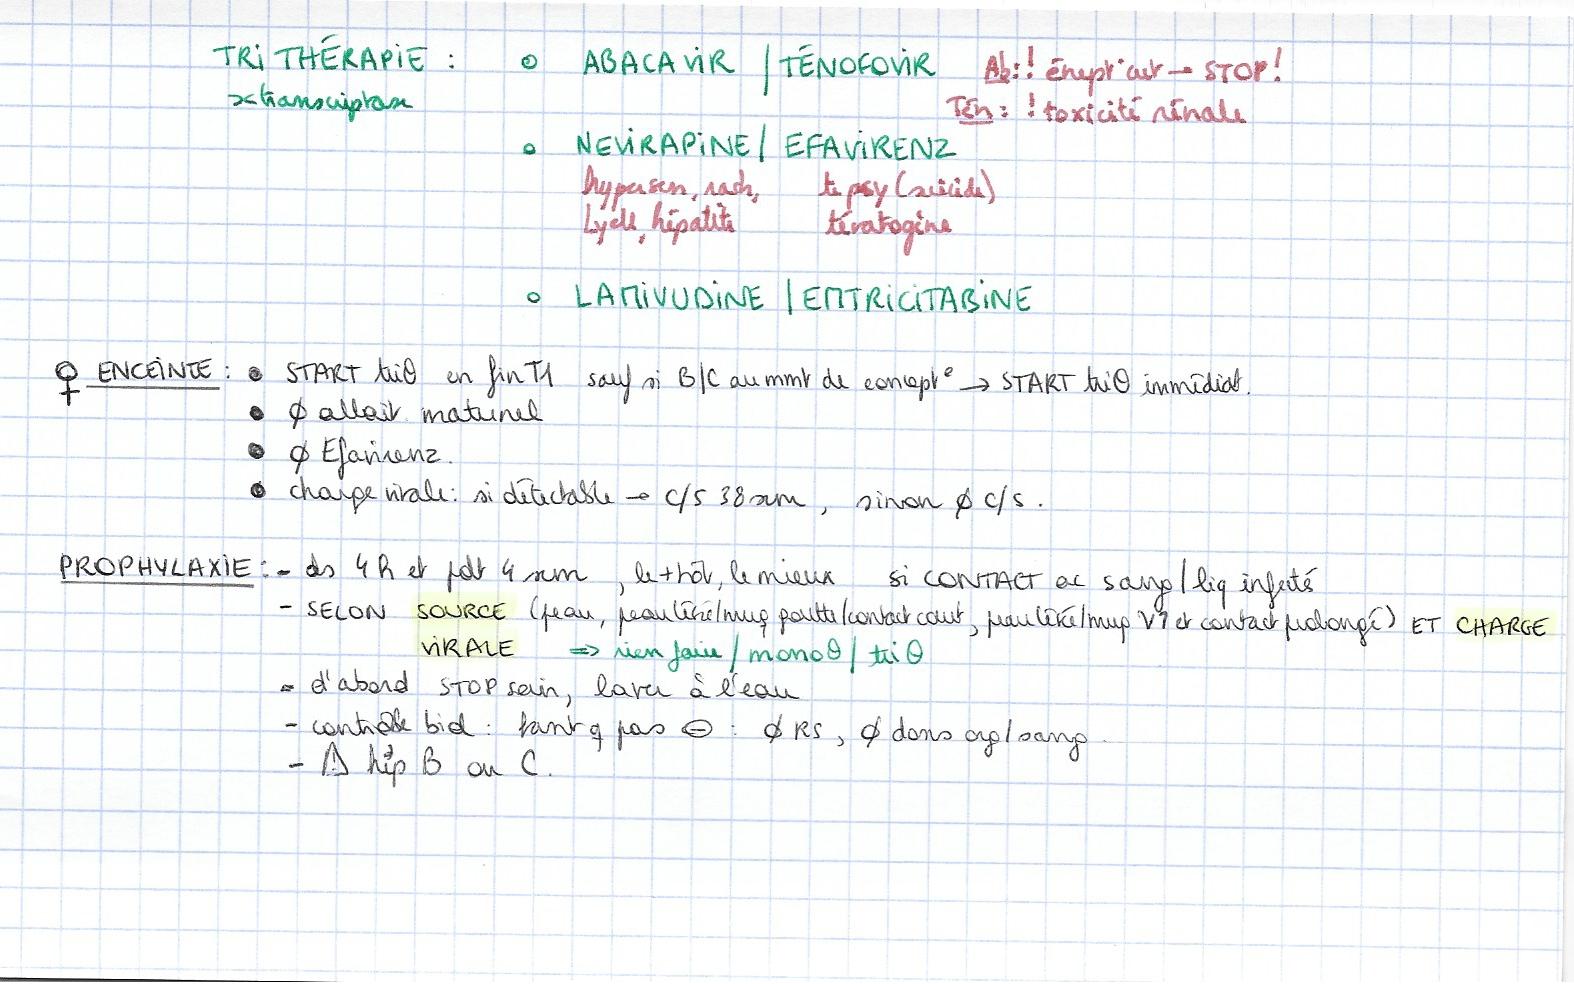 TRiTHÉRAPiE : o ABACAViR / TÉNOFOViR Ab:! érupt° cut → STOP!
>< transcriptase Tén: ! toxicité rénale
o NEViRAPiNE / EFAViRENZ
hypersen, rash, tr psy (suicide)
Lyell, hépatite tératogène
o LAMiVUDiNE / EMTRiCiTABiNE
♀ ENCEiNTE : • START triθ en fin T1 sauf si B/C au mmt de concept° → START triθ immédiat.
• ∅ allait. maternel
• ∅ Efavirenz.
• charge virale: si détectable → C/S 38 sem, sinon ∅ C/S.
PROPHYLAXiE : - ds 4h et pdt 4 sem, le + tôt, le mieux si CONTACT ac sang/liq infecté
- SELON SOURCE (peau, peau lésé/muq goutte/contact court, peau lésé/muq V↑ et contact prolongé) ET CHARGE
ViRALE => rien faire / monoθ / triθ
- d'abord STOP sein, laver à l'eau
- contrôle biol : tant q pas ⊖ : ∅ RS, ∅ dons org/sang.
- Δ hép B ou C.